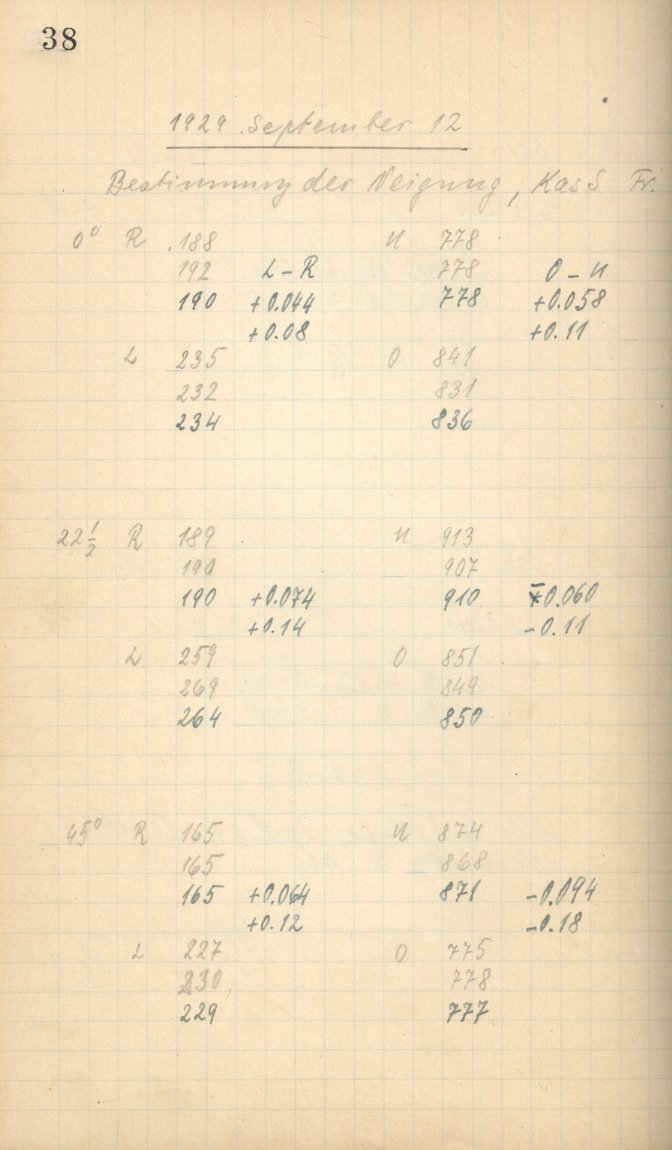 38
1929 September 12
Bestimmung der Neigung, Kas S Fr.
0° R .188 U 778
192 L-R 778 O-U
190 +0.044 778 +0.058
+0.08 +0.11
L 235 O 841
232 831
234 836
22 1/2 R 189 U 913
190 907
190 +0.074 910 -0.060
+0.14 -0.11
L 259 O 851
269 849
264 850
45° R 165 U 874
165 868
165 +0.064 871 -0.094
+0.12 -0.18
L 227 O 775
230 778
229 777